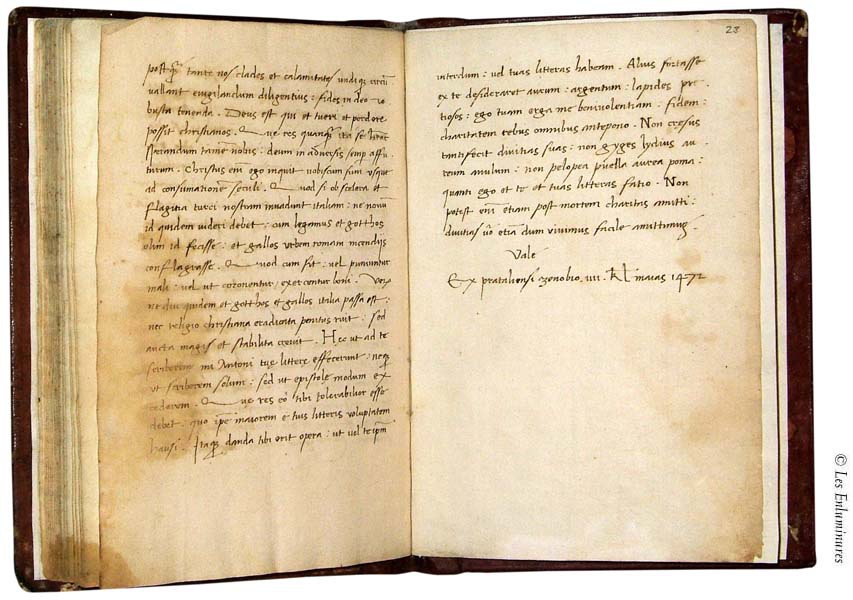 postq̃ tante nos clades et calamitates undiq; circũ
vallant evigilandum diligentius : fides in deo ro
busta tenenda . Deus est qui et tueri et perdere
possit christianos . Que res quanq̃ ita se
tamen nobis : deum in adversis semp affu
turum . Christus em̃ ego inquit vobiscum sum usque
ad consumationem seculi . Quod si ob scelera et
flagitia turci nostram invadunt italiam : ne novũ
id quidem videri debet : cum legamus et gotthos
olim id fecisse : et gallos urbem romam incendijs
conflagrasse . Quod cum fit : vel puniuntur
mali : vel ut coronentur exercentur boni . Ver
ne diu quidem et gotthos et gallos italia passa est :
nec religio christiana eradicata penitus ruit : sed
aucta magis et stabilita crevit . Hec ut ad te
scriberem mi Antoni tuę litterę effecerunt : neq;
ut scriberem solum : sed ut epistolę modum ex
cederem . Que res eo tibi tolerabilior esse
debet : quo ipẽ maiorem e tuis litteris voluptatem
hausi . Itaq; danda tibi erit opera : ut vel teipm̃
23
interdum : vel tuas litteras habeam . Alius fortasse
ex te desideraret aurum : argentum : lapides pre
tiosos : ego tuam erga me benivolentiam : fidem :
charitatem rebus omnibus antepono . Non cresus
tanti fecit divitias suas : non gyges lydius au
reum anulum : non pelopea puella aurea poma :
quanti ego et te et tuas litteras facio . Non
potest em̃ etiam post mortem charitas amitti :
divitias vo etiã dum vivimus facile amittimus .
Vale
Ex prataliensi zenobio . iiii . kł maias 1472
© Les Enluminures